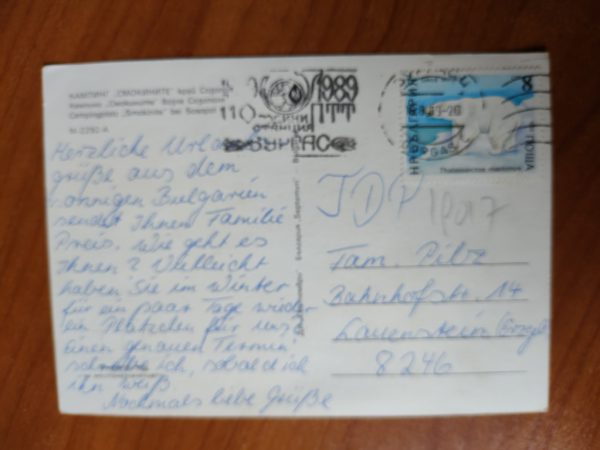 КЪМПИНГ "СМОКИНИТЕ" край
Кемпинг "Смокините"
Campingplatz "Smokinite" bei Sosopol
М-2292-А
Herzliche Urlaubs-
grüße aus dem
sonnigen Bulgarien
sendet Ihnen Familie
Preis. Wie geht es
Ihnen? Vielleicht
haben Sie im Winter
für ein paar Tage wieder
ein Plätzchen für uns.
Einen genauen Termin
schreibe ich, sobald ich
ihn weiß.
Nochmals liebe Grüße
1989
110
ПТТ
СТАНЦИЯ
БУРГАС
НР БЪЛГАРИЯ
8
ПОЩА
Thalassarctos maritimus
JDP
Fam. Pilz
Bahnhofstr. 14
Lauenstein (Erzgeb.)
8246